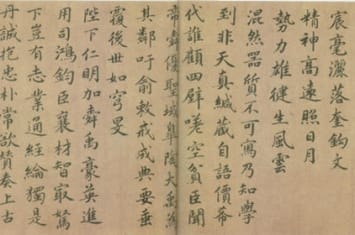 宸毫灑落奎鈎文
精神高遠照日月
勢力雄健生風雲
混然器質不可寫乃知學
到非天真緘藏自語價希
代誰顧四壁嗟空貧臣聞
帝舜優聖域皐陶大禹為
其鄰吁俞敕戒成典要垂
覆後世如穹旻
陛下仁明加舜禹豪英進
用司鴻鈞臣襄材智最駑
下豈有志業通經綸獨是
丹誠抱忠朴常欲贊奏上古